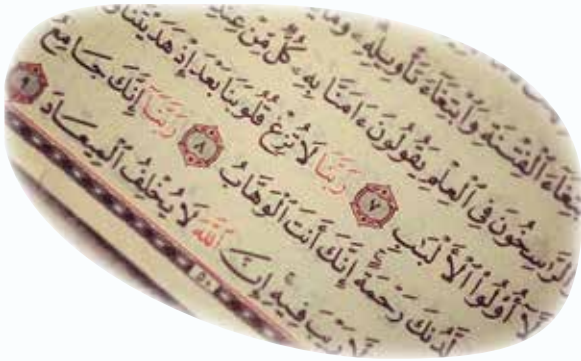 ٱبْتِغَآءَ ٱلْفِتْنَةِ وَٱبْتِغَآءَ تَأْوِيلِهِۦ وَمَا
وَٱلرَّٰسِخُونَ فِى ٱلْعِلْمِ يَقُولُونَ ءَامَنَّا بِهِۦ كُلٌّ مِّنْ عِندِ
إِلَّآ أُو۟لُوا۟ ٱلْأَلْبَٰبِ ٧ رَبَّنَا لَا تُزِغْ قُلُوبَنَا بَعْدَ إِذْ هَدَيْتَنَا
لَّدُنكَ رَحْمَةً إِنَّكَ أَنتَ ٱلْوَهَّابُ ٨ رَبَّنَآ إِنَّكَ جَامِعُ
لَّا رَيْبَ فِيهِ إِنَّ ٱللَّهَ لَا يُخْلِفُ ٱلْمِيعَادَ ٩
٥٠